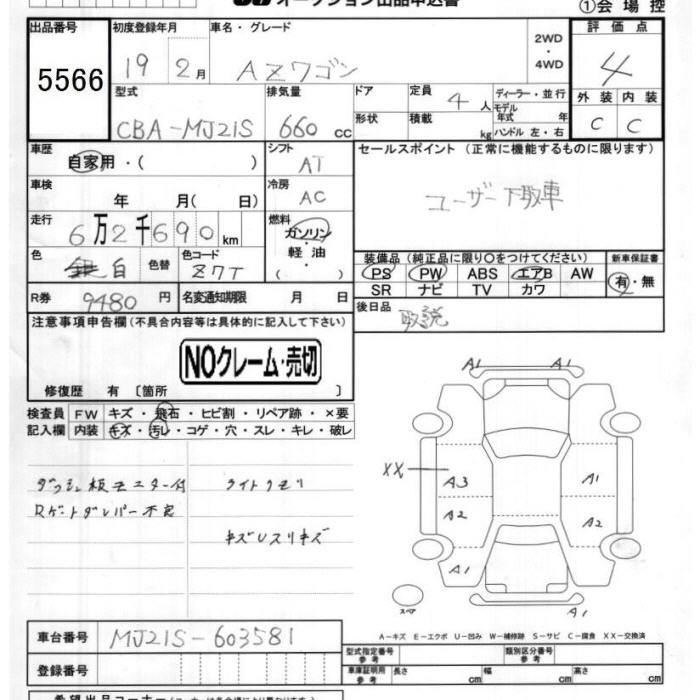 オークション出品申込書
①会場控
出品番号 初度登録年月 車名・グレード 評価点
5566 19 2月 AZワゴン 2WD・4WD 4
型式 排気量 ドア 定員 4人 ディーラー・並行 外装 内装
モデル年式 年
CBA-MJ21S 660cc 形状 積載 kg ハンドル 左・右 C C
車歴 自家用・( ) シフト AT セールスポイント (正常に機能するものに限ります)
車検 年 月( 日) 冷房 AC ユーザー下取車
走行 6万2千690km 燃料 ガソリン 軽油・( )
装備品 (純正品に限り○をつけてください) 新車保証書
色 白 色替 色コード Z7T
PS PW ABS エアB AW 有・無
SR ナビ TV カワ
R券 9480円 名変通知期限 月 日 後日品 取説
注意事項申告欄 (不具合内容等は具体的に記入して下さい)
NOクレーム・売切
修復歴 有 〔箇所 〕
検査員 FW キズ・飛石・ヒビ割・リペア跡・×要
記入欄 内装 キズ・汚レ・コゲ・穴・スレ・キレ・破レ
ダッシュ板モニター付 ライトクモリ
Rゲートダンパー不良
キズUスリキズ
A1 A1
XX A3 A1
A2 A2
A1
スペア A1
A-キズ E-エクボ U-凹み W-補修跡 S-サビ C-腐食 XX-交換済
車台番号 MJ21S-603581
型式指定番号 参考 類別区分番号 参考
登録番号
車庫証明用 参考 長さ cm 幅 cm 高さ cm
希望出品コーナー